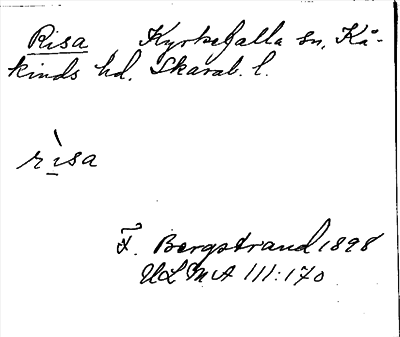 Risa Kyrkefalla sn, Kå-
kinds hd, Skarab. l.
rìsa
F. Bergstrand 1898
ULMA 111:170